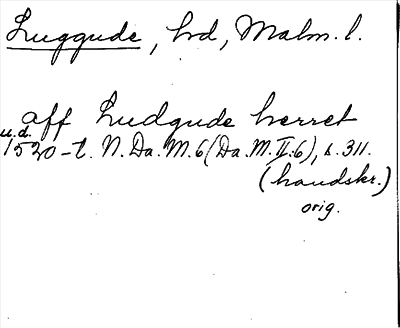 Luggude, hd, Malm. l.
aff Ludgude herret
u.d.
1520-t. N. Da. M. 6 (Da. M. II:6), s. 311.
(handskr.)
orig.